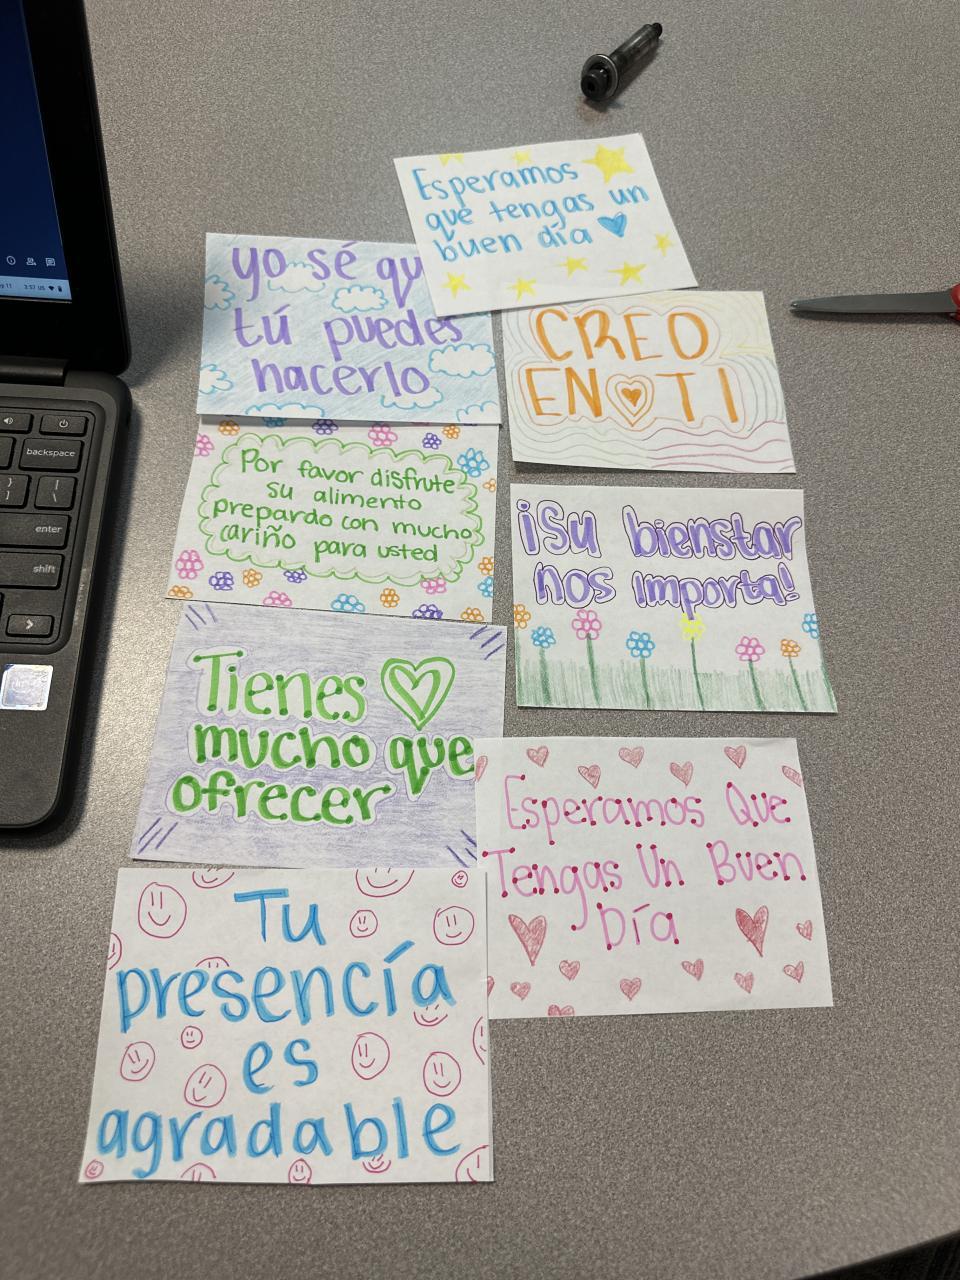 Esperamos
que tengas un
buen día
yo sé qu
tú puedes
hacerlo
CREO
EN TI
Por favor disfrute
su alimento
prepardo con mucho
cariño para usted
¡Su bienstar
nos importa!
Tienes
mucho que
ofrecer
Esperamos Que
Tengas Un Buen
Día
Tu
presencía
es
agradable
backspace
enter
shift
3:57 US